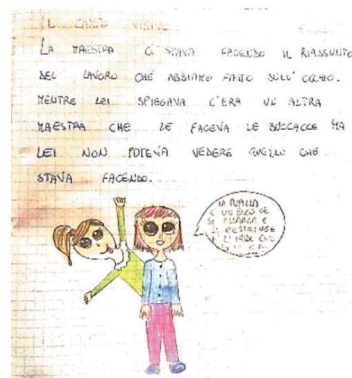 IL CAMPO VISIVO
LA MAESTRA CI STAVA FACENDO IL RIASSUNTO
DEL LAVORO CHE ABBIAMO FATTO SULL' OCCHIO.
MENTRE LEI SPIEGAVA C'ERA UN ALTRA
MAESTRA CHE LE FACEVA LE BOCCACCE MA
LEI NON POTEVA VEDERE QUELLO CHE
STAVA FACENDO.
LA PUPILLA
È UN BUCO CHE
SI ALLARGA E
SI RESTRINGE
E L'IRIDE CHE